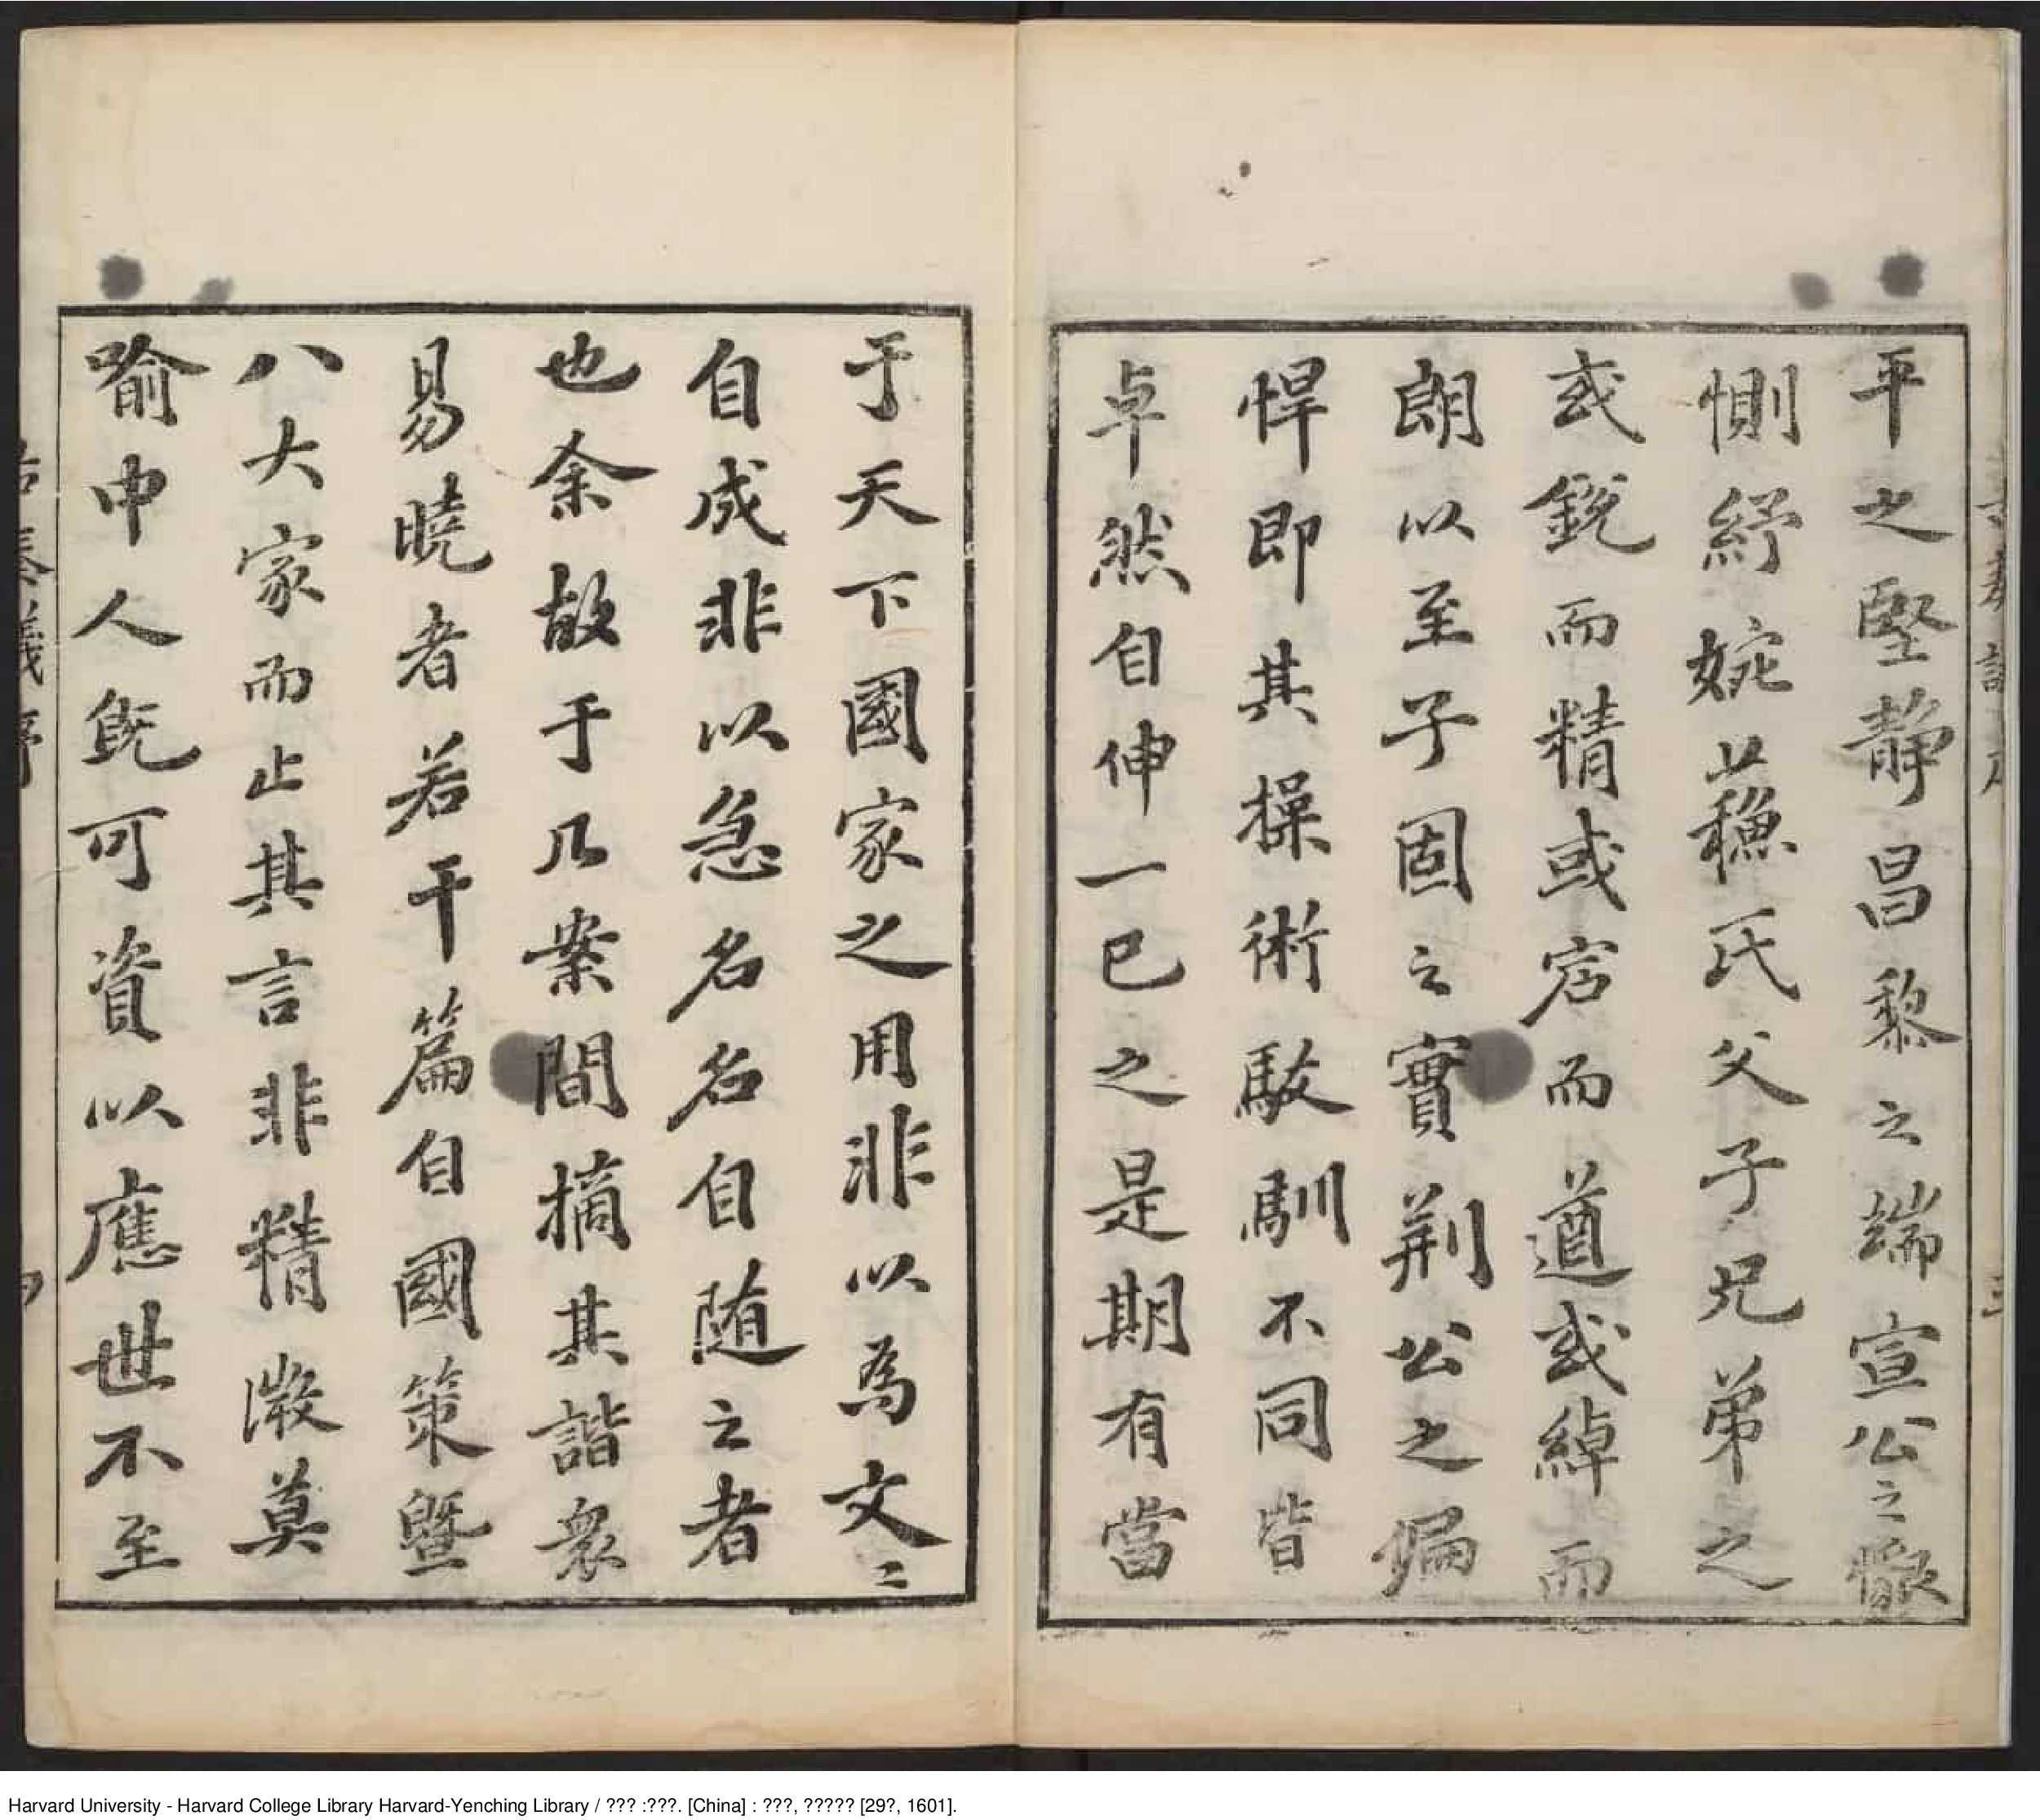 平之堅静昌黎之端宣公之懇
惻紓婉以蘓氏父子兄弟之
或銳而精或宕而遒或綽而
朗以至子固之實荆公之偏
悍即其操術駁馴不同皆
卓然自伸一已之是期有當
于天下國家之用非以為文〻
自成非以急名名自随之者
也余故于几案間摘其諧衆
易曉者若干篇自國策暨
八大家而止其言非精微莫
喻中人既可資以應世不至
Harvard University - Harvard College Library Harvard-Yenching Library / ??? :???. [China] : ???, ????? [29?, 1601].